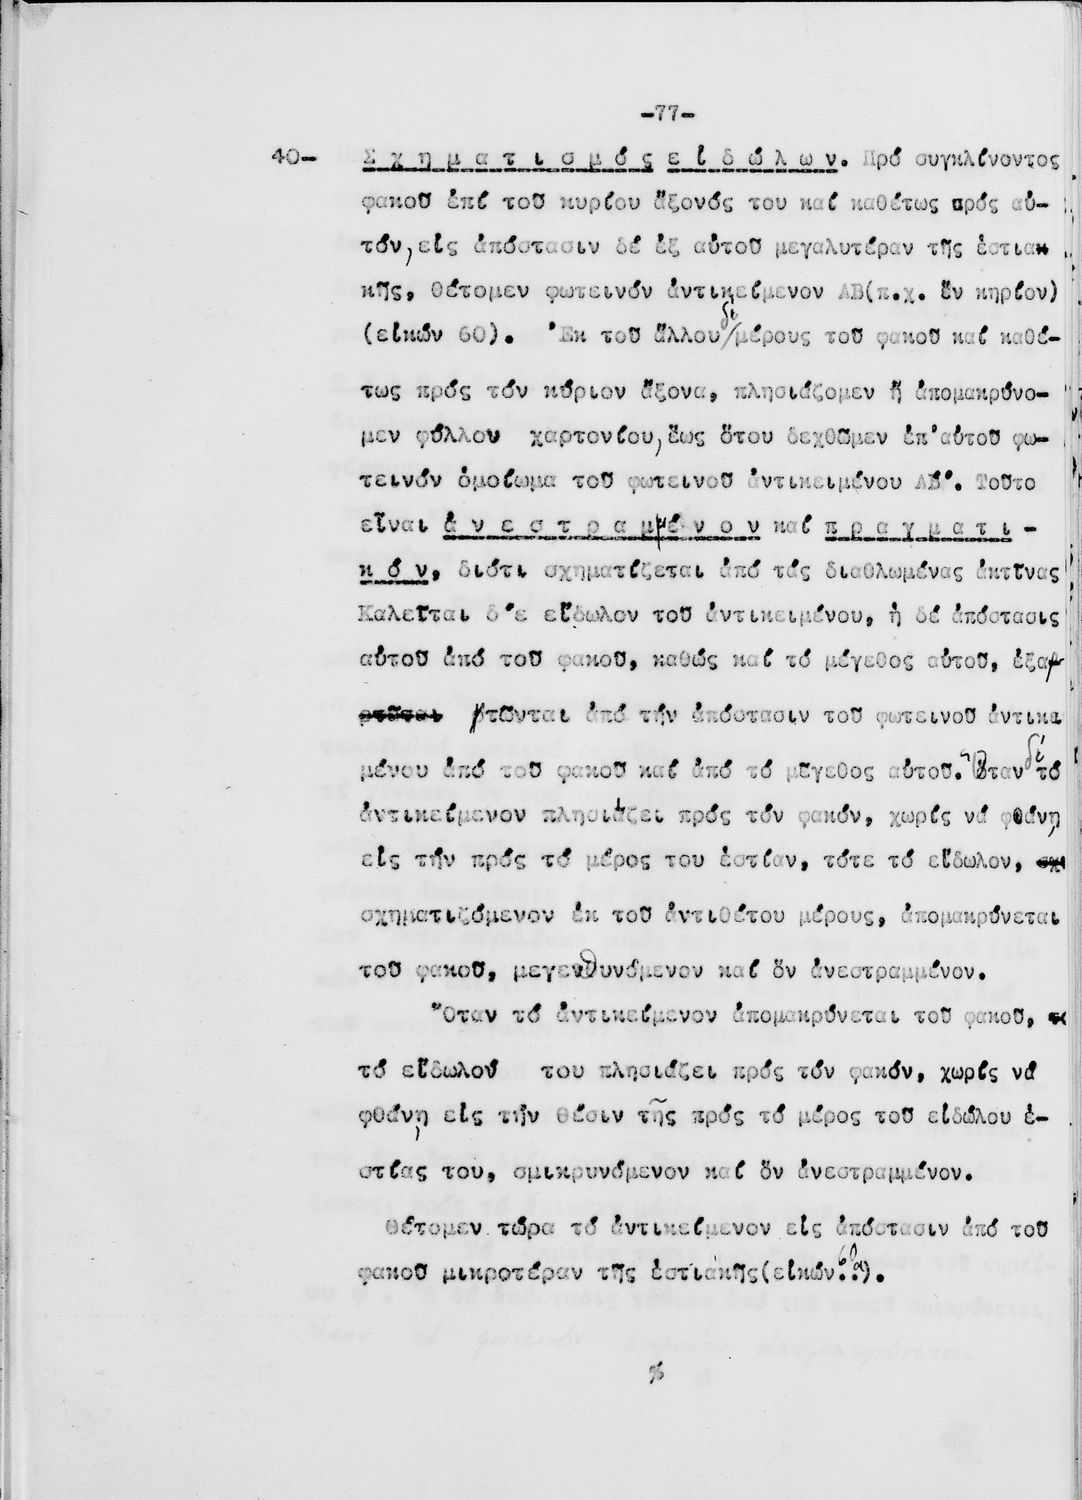 -77-
40- Σ χ η μ α τ ι σ μ ό ς ε ί δ ώ λ ω ν. Πρό συγκλίνοντος
φακοῦ ἐπί τοῦ κυρίου ἄξονός του καί καθέτως πρός αὐ-
τόν, εἰς ἀπόστασιν δέ ἐξ αὐτοῦ μεγαλυτέραν τῆς ἑστιακ
κῆς, θέτομεν φωτεινόν ἀντικείμενον ΑΒ(π.χ. ἕν κηρίον)
(εἰκών 60). Ἐκ τοῦ ἄλλου δέ/μέρους τοῦ φακοῦ καί καθέ-
τως πρός τόν κύριον ἄξονα, πλησιάζομεν ἤ ἀπομακρύνο-
μεν φύλλον χαρτονίου, ἕως ὅτου δεχθῶμεν ἐπ'αὐτοῦ φω-
τεινόν ὁμοίωμα τοῦ φωτεινοῦ ἀντικειμένου ΑΒ'. Τοῦτο
εἶναι ἀ ν ε σ τ ρ α μ μ έ ν ο ν καί π ρ α γ μ α τ ι -
κ ό ν, διότι σχηματίζεται ἀπό τάς διαθλωμένας ἀκτῖνας
Καλεῖται δ'ε εἴδωλον τοῦ ἀντικειμένου, ἡ δέ ἀπόστασις
αὐτοῦ ἀπό τοῦ φακοῦ, καθώς καί τό μέγεθος αὐτοῦ, ἐξαρ
ρτῶνται ἀπό τήν ἀπόστασιν τοῦ φωτεινοῦ ἀντικε
μένου ἀπό τοῦ φακοῦ καί ἀπό τό μέγεθος αὐτοῦ. Ὅταν δέ τό
ἀντικείμενον πλησιάζει πρός τόν φακόν, χωρίς νά φθάνῃ
εἰς τήν πρός τό μέρος του ἑστίαν, τότε τό εἴδωλον, σχι
σχηματιζόμενον ἐκ τοῦ ἀντιθέτου μέρους, ἀπομακρύνεται
τοῦ φακοῦ, μεγενθυνόμενον καί ὄν ἀνεστραμμένον.
Ὅταν τό ἀντικείμενον ἀπομακρύνεται τοῦ φακοῦ, το
τό εἴδωλού του πλησιάζει πρός τόν φακόν, χωρίς νά
φθάνῃ εἰς τήν θέσιν τῆς πρός τό μέρος τοῦ εἰδώλου ἑ-
στίας του, σμικρυνόμενον καί ὄν ἀνεστραμμένον.
θέτομεν τώρα τό ἀντικείμενον εἰς ἀπόστασιν ἀπό τοῦ
φακοῦ μικροτέραν τῆς ἑστιακῆς(εἰκών 60α).
%